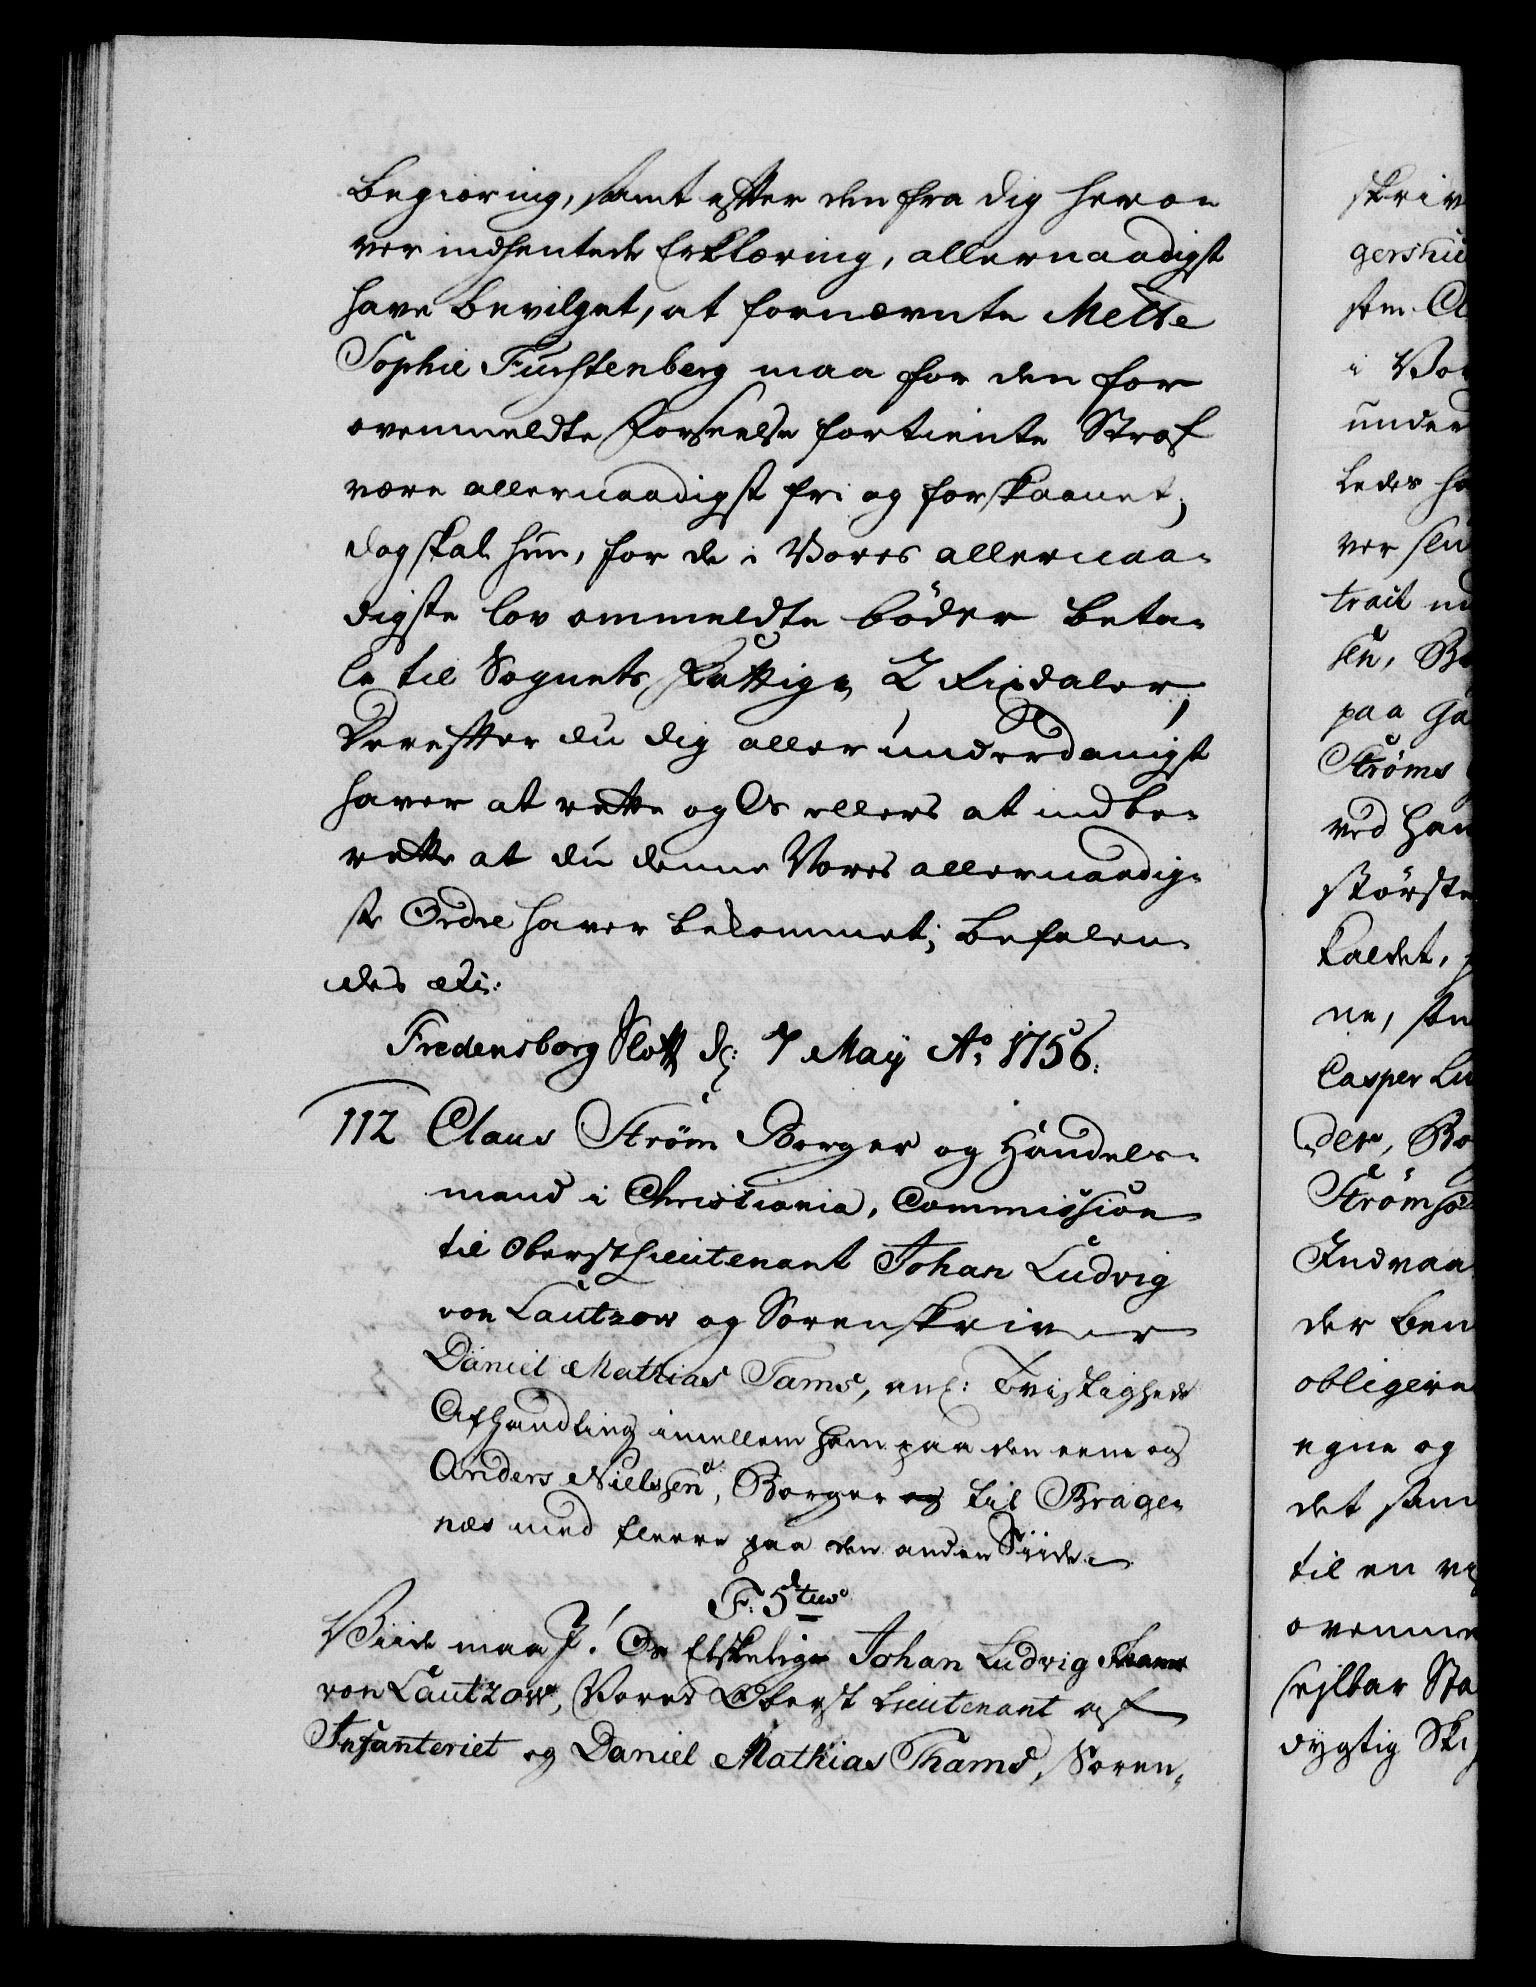 begiæring, samt efter den fra dig herov-
ver indhentede Erklæring, allernaadigst
have bevilget, at fornævnte Mette
Sophie Fürstenberg maa for den for
ovenmeldte Forseelse fortiente Straf
være allernaadigst fri og forskaanet;
dog skal hun, for de i Vores allernaa-
digste lov ommeldte böder beta-
le til Sognets Fattige 2 Rixdaler;
Derefter du dig allerunderdanigst
haver at rette og Os ellers at indbe-
rette at du denne Vores allernaadig-
ste Ordre haver bekommet; befalen-
des etc:
Fredensborg Slott d: 7 Maÿ Ao 1756.
112 Claus Strøm Borger og Handels-
mand i Christiania, Commission
til Oberstlieutenant Johan Ludvig
von Lautzow og Sorenskriver
Daniel Mathias Tams, anl: Tvistigheds
Afhandling imellem ham paa den eene og
Anders Nielssen, Borger og til Brage-
næs med fleere paa den anden Siide.
F: 5tus
Viide maa I! Os Elskelige Johan Ludvig
von Lautzow, Vores Oberst Lieutenant af
Infanteriet og Daniel Mathias Thams, Soren-
skriv
gershu
sten Cl
i Vor
under
ledes ha
ver slu
tract
sen, Bo
paa Ga
Strøms
ved Han
störste
kaldet,
ne,
Casper Lu
der, Bo
Strömsö
Indvaa
der ben
obligere
egne og
det sam
til en
ovenme
sejlbar Sta
dygtig Ski